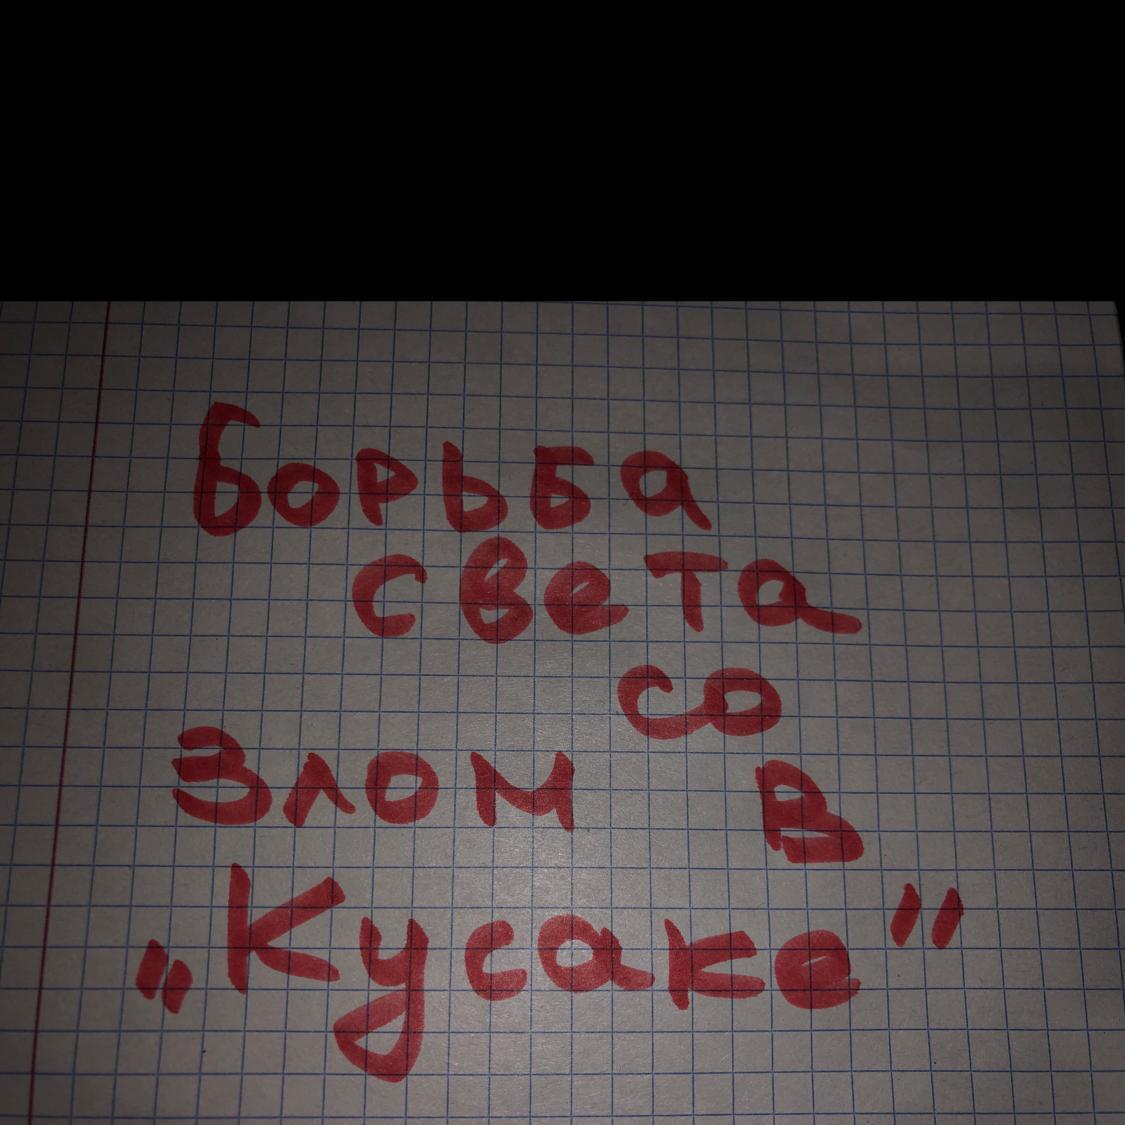 Борьба
света
со
Злом в
„Кусаке"